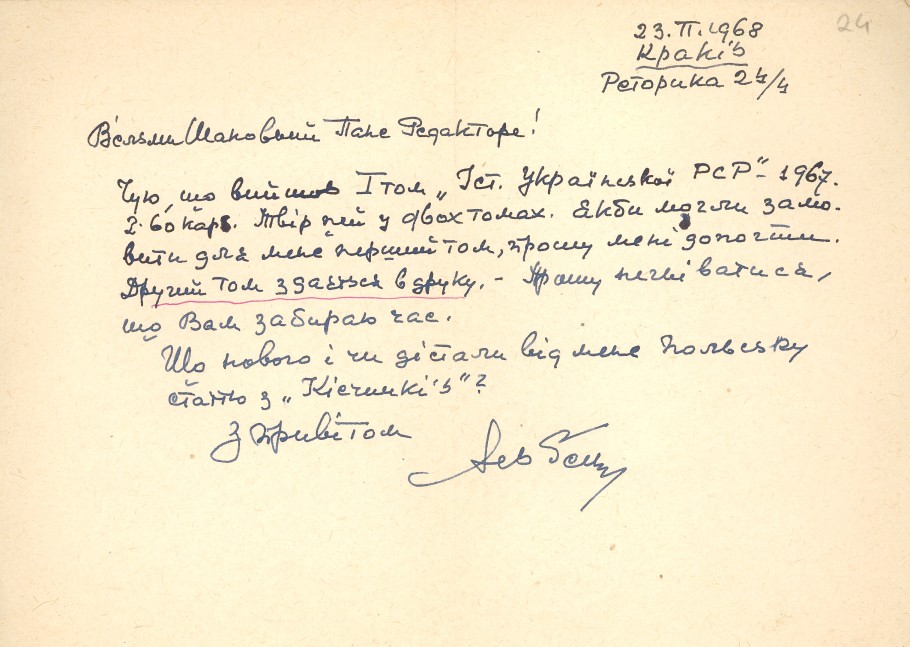 24
23.II.1968
Краків
Реторика 24/4
Вельми Шановний Пане Редакторе!
Чую, що вийшов I том „Іст. Української РСР" – 1967.
2.60 карб. Твір цей у двох томах. Якби могли замо-
вити для мене перший том, прошу мені допогти.
Другий том здається в друку. – Прошу негніватися,
що Вам забираю час.
Що нового і чи дістали від мене польську
статтю з
З привітом
Лев